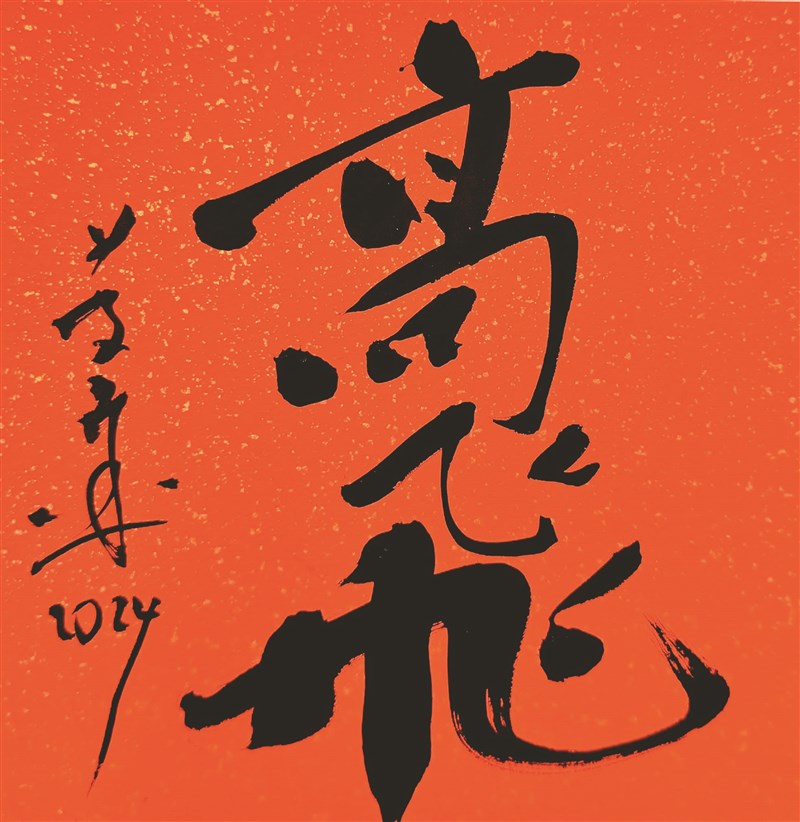 高飛
2024